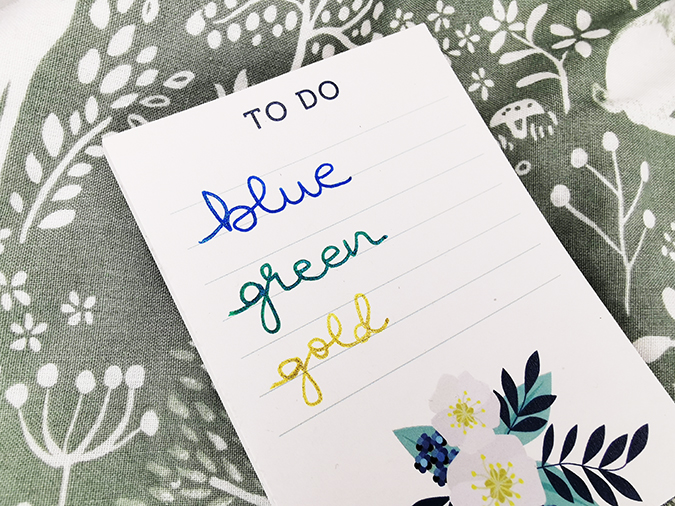 TO DO
blue
green
gold